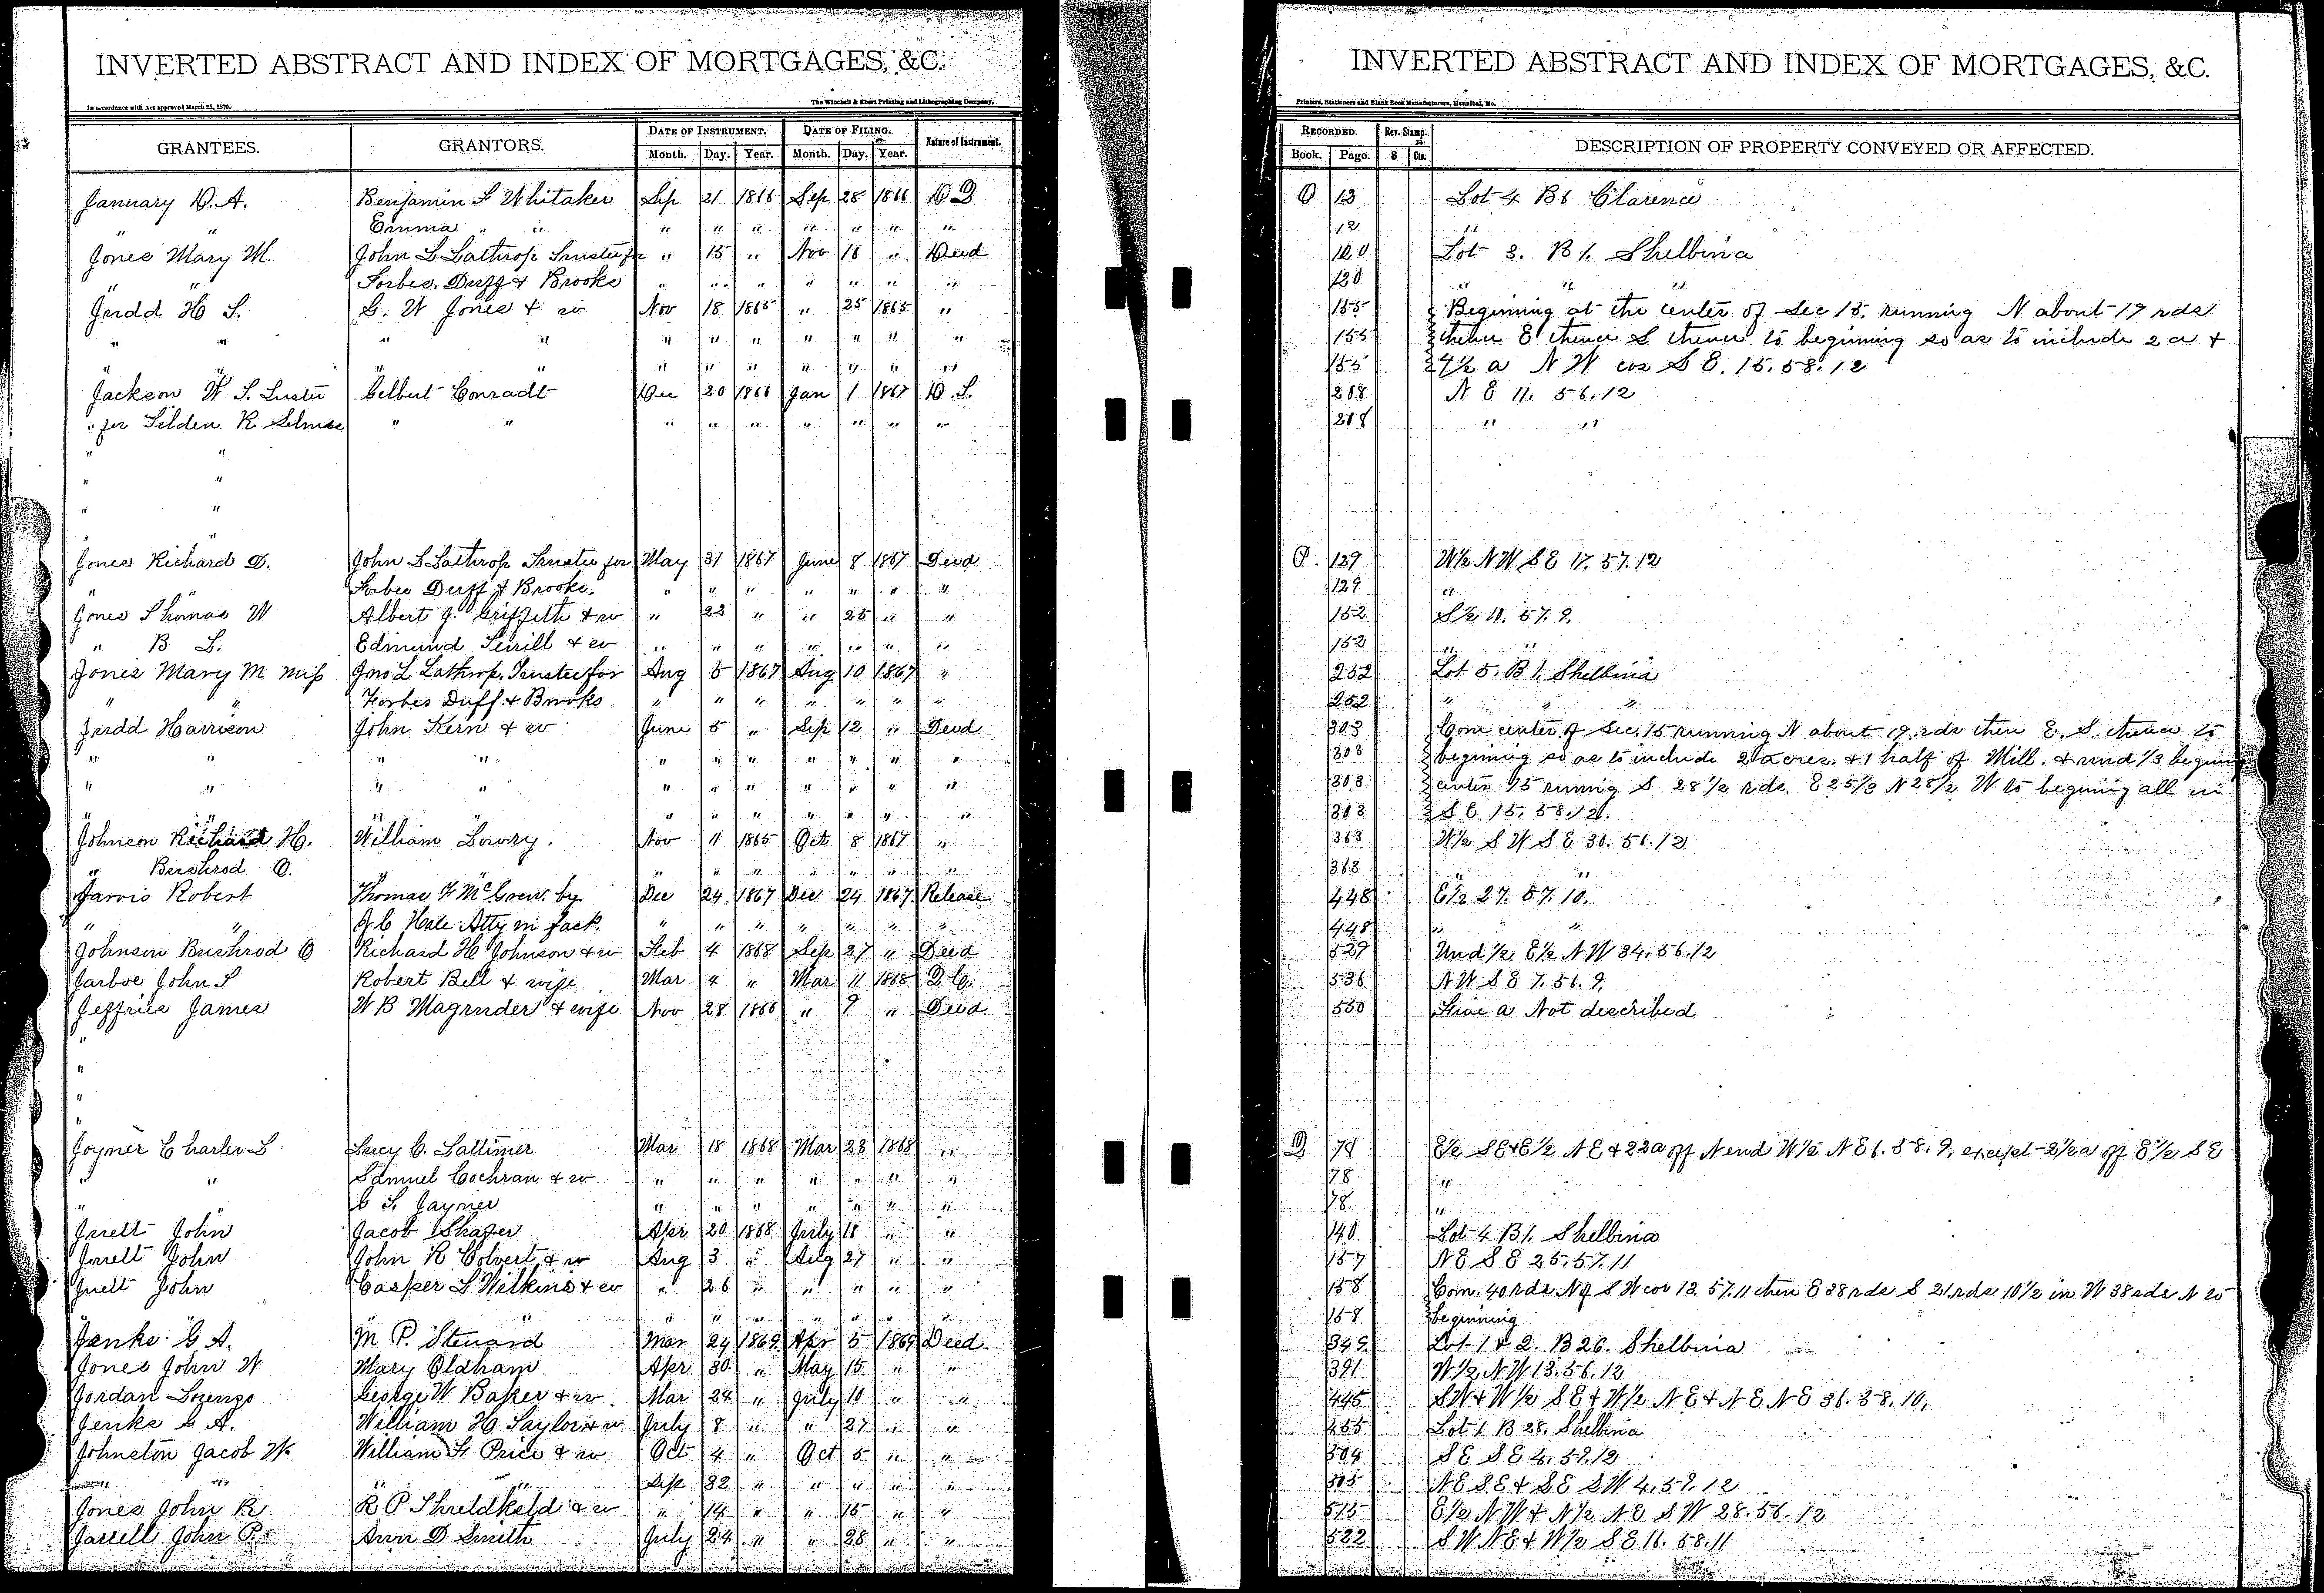 INVERTED ABSTRACT AND INDEX OF MORTGAGES, &C.
In accordance with Act approved March 25, 1870.
The Winchell & Ebert Printing and Lithographing Company,
GRANTEES. GRANTORS. DATE OF INSTRUMENT. DATE OF FILING. Nature of Instrument.
Month. Day. Year. Month. Day. Year.
January D. A. Benjamin L Whitaker Sep 21 1866 Sep 28 1866 D D
" " Emma " " " " " " " " "
Jones Mary M. John L Lathrop Trustee for " 15 " Nov 16 " Deed
" " Forbes, Duff & Brooks " " " " " " "
Judd H S. G. W Jones & w Nov 18 1865 " 25 1865 "
" " " " " " " " " " "
" " " " " " " " " " "
Jackson W S. Trustee Gelbert Conradt Dec 20 1866 Jan 1 1867 D. T.
" for Selden R " " " " " " " " "
" "
" "
" "
" "
Jones Richard D. John L Lathrop Trustee for May 31 1867 June 8 1867 Deed
" Forbes Duff & Brooks. " " " " " " "
Jones Thomas W Albert J. Griffith & w " 22 " " 25 " "
" B L. Edmund & w " " " " " " "
Jones Mary M Miss Jno L Lathrop, Trustee for Aug 5 1867 Aug 10 1867 "
" " Forbes Duff & Brooks " " " " " " "
Judd Harrison John Kern & w June 5 " Sep 12 " Deed
" " " " " " " " " " "
" " " " " " " " " " "
" " " " " " " " " " "
Johnson Richard H. William Lowry. Nov 11 1865 Oct 8 1867 "
" Bushrod O. " " " " " " " "
Jarvis Robert Thomas F McGrew. by Dec 24 1867 Dec 24 1867 Release
" " Hale Atty in fact. " " " " " " "
Johnson Bushrod O Richard H Johnson & w Feb 4 1868 Sep 27 " Deed
Jarboe John S Robert Bell & wife Mar 4 " Mar 11 1868
Jeffries James W B Magruder & wife Nov 28 1866 " 9 " Deed
"
"
"
"
Joyner Charles S Lucy C. Lattimer Mar 18 1868 Mar 23 1868 "
" " Samuel Cochran & w " " " " " " "
" C S. Jaynes " " " " " " "
Jewett John Jacob Shafer Apr 20 1868 July 18 " "
Jewett John John R Colvert & w Aug 3 " Aug 27 " "
Jewett John Casper L Wilkins & w " 26 " " " " "
" " " " " " " " "
Jenks G A. M P. Steward Mar 24 1869 Apr 5 1869 Deed
Jones John W Mary Oldham Apr 30 " May 15 " "
Jordan Lorenzo George W Baker & w. Mar 24 " July 10 " "
Jenks G A. William H Saylor & w July 8 " " 27 " "
Johnston Jacob W William Price & w Oct 4 " Oct 5 " "
" " " " Sep " " " " "
Jones John R R P Threldkeld & w " 14 " " 15 " "
Jarrell John P. Ann D Smith July 24 " " 28 " "
INVERTED ABSTRACT AND INDEX OF MORTGAGES, &C.
Printers, Stationers and Blank Book Manufacturers, Hannibal, Mo.
RECORDED. Rev. Stamp. DESCRIPTION OF PROPERTY CONVEYED OR AFFECTED.
Book. Page. $ Cts.
O 12 Lot 4 B 6 Clarence
12 "
120 Lot 3. B 1. Shelbina
120 " " "
155 Beginning at the center of Sec 15, running N about 19 rds
155 thence E thence S thence to beginning so as to include 2 a &
155 4½ a N W cor S E. 15. 58. 12
218 N E 11. 56. 12
218 " "
P. 129 W½ NW SE 17. 57. 12
129 "
152 S½ 11. 57. 9.
152 "
252 Lot 5. B 1. Shelbina
252 " "
303 Com center of Sec. 15 running N about 19 rds then E. S. thence to
303 beginning so as to include 2 acres. & 1 half of Mill. & und 1/3 beginning
303 center 15 runing S. 28½ rds. E 25 1/3 N 28½ W to begining all in
303 S E 15. 58. 12.
363 W½ S W S. E 30. 56. 12
363 "
448 E½ 27. 57. 10.
448 " "
527 Und ½ E½ N W 34. 56. 12
536 N W S E 7. 56. 9.
550 Five a Not described
Q 78 E½ SE & E½ N E & 22a off N end W½ N E 1. 58. 9, except 2½a off E½ S E
78 "
78 "
140 Lot 4 B 1. Shelbina
157 N E S E 25. 57. 11
158 Com. 40 rds N of S W cor 13. 57. 11 then E 38 rds S 21 rds 10½ in W 38 rds N to
158 beginning
343 Lot 1 & 2. B 26. Shelbina
391 W½ N W 13. 56. 12
445 SW & W½ SE & W½ N E & N E N E 36. 58. 10,
455 Lot 1. B 28. Shelbina
504 S E S E 4. 57. 12
505 N E S E & S E S W 4. 57. 12
515 E½ N W & N½ N E S W 28. 56. 12
522 S W N E & W½ S E 16. 58. 11